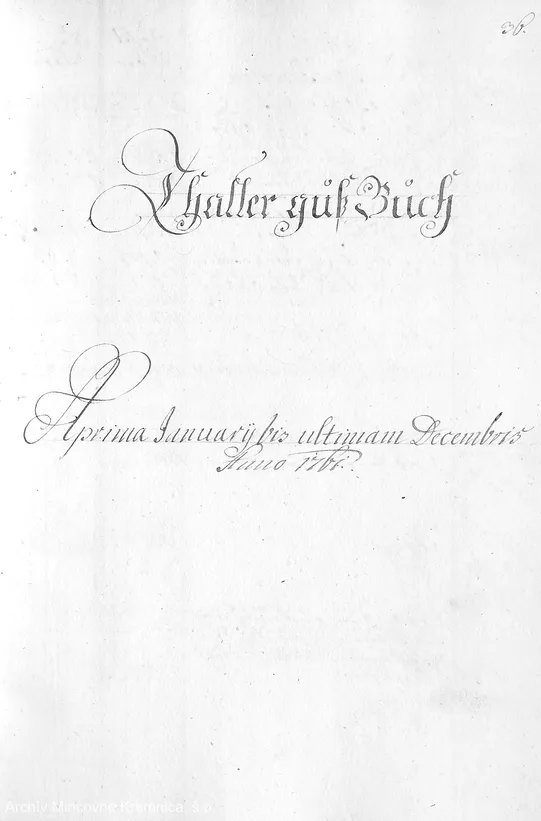 36.
Thaller guß Buch
A prima Januarÿ bis ultimam Decembris
Anno 1761.
Archív Mincovne Kremnica š.p.